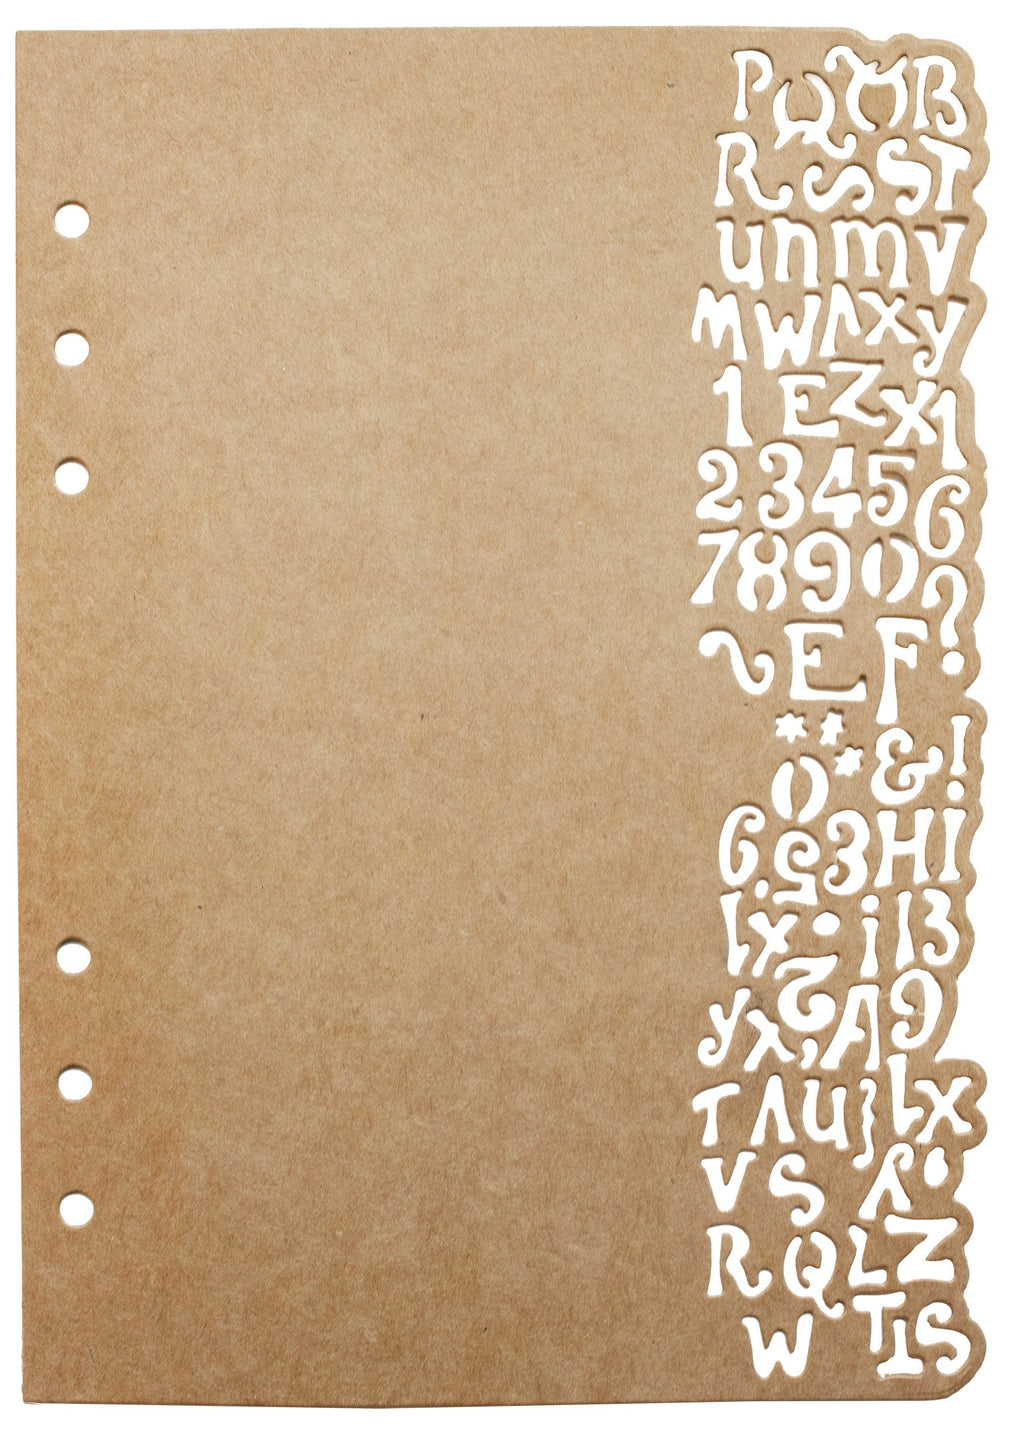 P Q M B
R S S T
u n m v
M W Λ X y
1 E Z X 1
2 3 4 5 6
7 8 9 0 ?
~ E F
* * * & !
0
6 5 3 H I
l x . i l 3
y x 2 , A 9
T Λ U } l x
V S
R Q L Z
W T I S